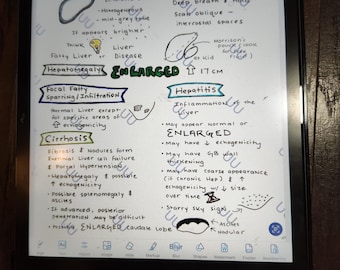 · Homogeneous
· mid-grey tone
If appears brighter
Think
Liver
Fatty Liver or Disease
Deep Breath & Hold
Scan oblique -
intercostal spaces
Morrison's
pouch (look
for free
fluid)
Rt Kid
Hepatomegaly ENLARGED ↑ 17cm
Focal Fatty
Sparring/Infiltration
Normal Liver except
for specific areas of
↑ echogenicity
Cirrhosis
Fibrosis & nodules form
Eventual Liver cell failure
& Portal Hypertension
· Hepatomegaly & possible
↑ echogenicity
· Possible splenomegaly &
ascites
· If advanced, posterior
penetration may be difficult
· ENLARGED Caudate Lobe
Hepatitis
Inflammation of the
Liver
· May appear normal or
ENLARGED
· May have ↓ echogenicity
· May have GB wall
thickening
· May have coarse appearance
(if chronic Hep) & ↑
echogenicity w/ ↓ size
over time
· Starry sky sign
Ascites
Nodular